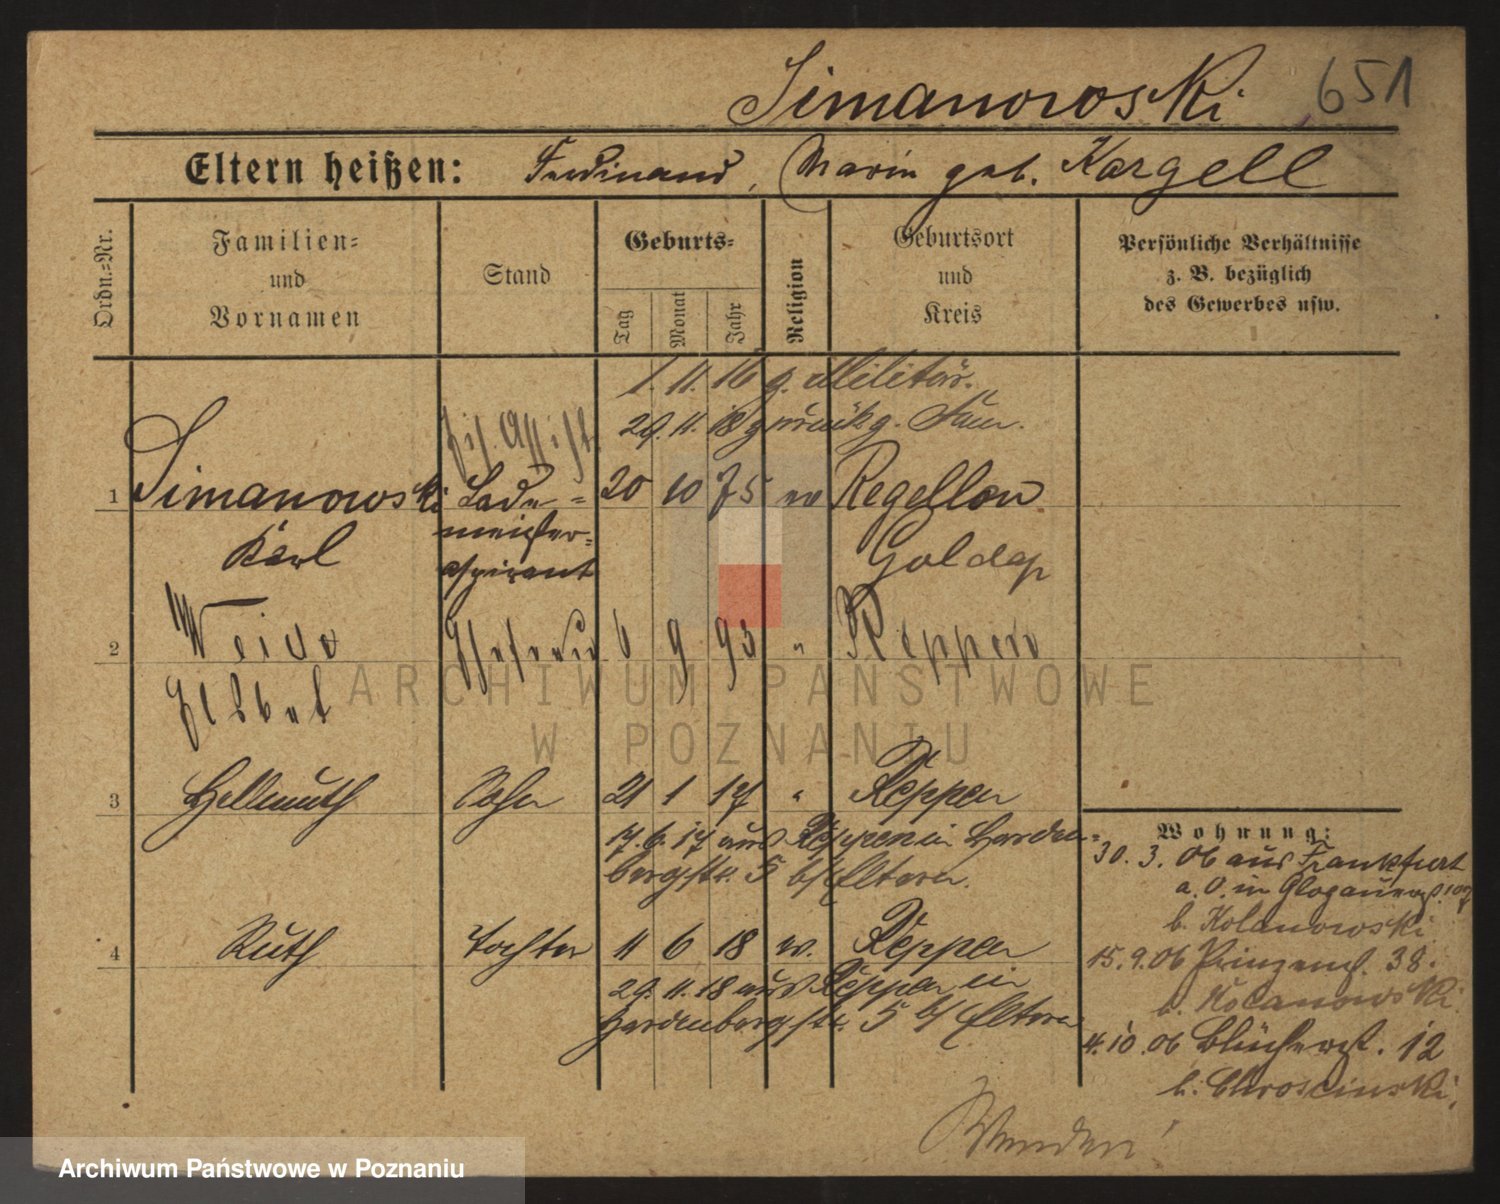 Simanowski 651
Eltern heißen: Ferdinand, Marie geb. Kargell
Ordn.=Nr.
Familien=
und
Vornamen
Stand
Geburts=
Tag
Monat
Jahr
Religion
Geburtsort
und
Kreis
Persönliche Verhältnisse
z. B. bezüglich
des Gewerbes usw.
1. 11. 16 z. Militär.
29. 11. 18 zurück z. Fam.
1 Simanowski Lade= 20 10 75 ev Regellen
meister=
Karl aspirant Goldap
2 Ehefrau 6 9 93 " Reppen
3 Hellmuth Sohn 21 1 17 " Reppen
17. 6. 17 aus Reppen in Harden=
bergstr. 5 b/ Eltern.
4 Ruth Tochter 11 6 18 ev. Reppen
29. 11. 18 aus Reppen in
Hardenbergstr. 5 b/ Eltern
Wohnung:
30. 3. 06 aus Frankfurt
a. O. in Glogauerst. 107
b. Kolanowski
15. 9. 06 Prinzenst. 38.
b. Kolanowski.
4. 10. 06 Blücherst. 12
b. Chroscinski.
Wenden!
ARCHIWUM PAŃSTWOWE
W POZNANIU
Archiwum Państwowe w Poznaniu